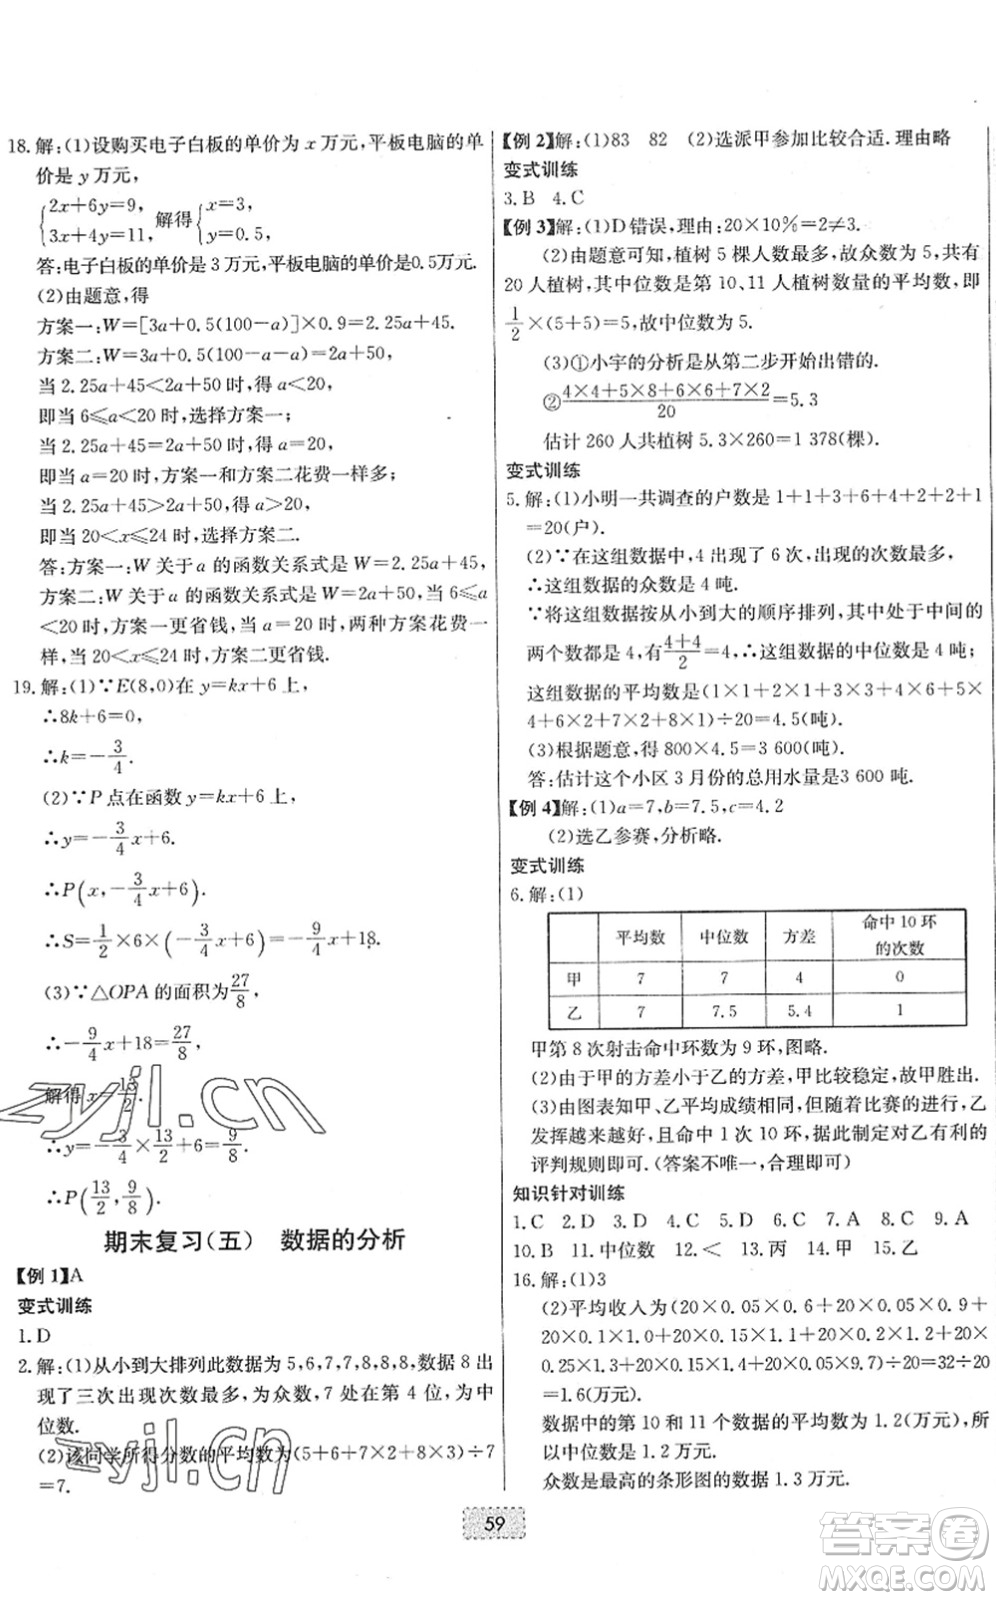 18. 解:(1)设购买电子白板的单价为 x 万元,平板电脑的单
价是 y 万元,
{2x+6y=9, 3x+4y=11, 解得 {x=3, y=0.5,
答:电子白板的单价是 3 万元,平板电脑的单价是0.5万元.
(2)由题意,得
方案一:W=[3a+0.5(100-a)]×0.9=2.25a+45.
方案二:W=3a+0.5(100-a-a)=2a+50,
当 2.25a+45<2a+50 时,得 a<20,
即当 6≤a<20 时,选择方案一;
当 2.25a+45=2a+50 时,得 a=20,
即当 a=20 时,方案一和方案二花费一样多;
当 2.25a+45>2a+50 时,得 a>20,
即当 20<x≤24 时,选择方案二.
答:方案一:W 关于 a 的函数关系式是 W=2.25a+45,
方案二:W 关于 a 的函数关系式是 W=2a+50,当 6≤a
<20 时,方案一更省钱,当 a=20 时,两种方案花费一
样,当 20<x≤24 时,方案二更省钱.
19. 解:(1)∵E(8,0)在 y=kx+6 上,
∴8k+6=0,
∴k=-3/4.
(2)∵P 点在函数 y=kx+6 上,
∴y=-3/4x+6.
∴P(x,-3/4x+6).
∴S=1/2×6×(-3/4x+6)=-9/4x+18.
(3)∵△OPA 的面积为27/8,
∴-9/4x+18=27/8,
解得 x=13/2.
∴y=-3/4×13/2+6=9/8.
∴P(13/2,9/8).
期末复习(五) 数据的分析
【例 1】A
变式训练
1. D
2. 解:(1)从小到大排列此数据为 5,6,7,7,8,8,8,数据 8 出
现了三次出现次数最多,为众数,7 处在第 4 位,为中
位数.
(2)该同学所得分数的平均数为(5+6+7×2+8×3)÷7
=7.
【例 2】解:(1)83 82 (2)选派甲参加比较合适.理由略
变式训练
3. B 4. C
【例 3】解:(1)D 错误,理由:20×10%=2≠3.
(2)由题意可知,植树 5 棵人数最多,故众数为 5,共有
20 人植树,其中位数是第 10、11 人植树数量的平均数,即
1/2×(5+5)=5,故中位数为 5.
(3)①小宇的分析是从第二步开始出错的.
②(4×4+5×8+6×6+7×2)/20=5.3
估计 260 人共植树 5.3×260=1 378(棵).
变式训练
5. 解:(1)小明一共调查的户数是 1+1+3+6+4+2+2+1
=20(户).
(2)∵在这组数据中,4 出现了 6 次,出现的次数最多,
∴这组数据的众数是 4 吨.
∵将这组数据按从小到大的顺序排列,其中处于中间的
两个数都是 4,有(4+4)/2=4,∴这组数据的中位数是 4 吨;
这组数据的平均数是(1×1+1×2+3×3+6×4+5×
4+6×2+7×2+8×1)÷20=4.5(吨).
(3)根据题意,得 800×4.5=3 600(吨).
答:估计这个小区 3 月份的总用水量是 3 600 吨.
【例 4】解:(1)a=7,b=7.5,c=4.2
(2)选乙参赛,分析略.
变式训练
6. 解:(1)
平均数 中位数 方差 命中 10 环的次数
甲 7 7 4 0
乙 7 7.5 5.4 1
甲第 8 次射击命中环数为 9 环,图略.
(2)由于甲的方差小于乙的方差,甲比较稳定,故甲胜出.
(3)由图表知甲、乙平均成绩相同,随着比赛的进行,乙
发挥越来越好,且命中 1 次 10 环,据此制定对乙有利的
评判规则即可.(答案不唯一,合理即可)
知识针对训练
1. C 2. D 3. D 4. C 5. D 6. C 7. A 8. C 9. A
10. B 11. 中位数 12. < 13. 丙 14. 甲 15. 乙
16. 解:(1)3
(2)平均收入为(20×0.05×0.6+20×0.05×0.9+
20×0.1×1.0+20×0.15×1.1+20×0.2×1.2+20×
0.25×1.3+20×0.15×1.4+20×0.05×9.7)=32÷20
=1.6(万元).
数据中的第 10 和 11 个数据的平均数为 1.2(万元),所
以中位数是 1.2 万元.
众数是最高的条形图的数据 1.3 万元.
59
zyjl.cn
zyjl.cn
答案圈
MXQE.COM